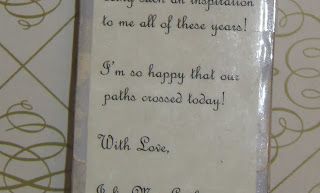 being such an inspiration
to me all of these years!
I'm so happy that our
paths crossed today!
With Love,